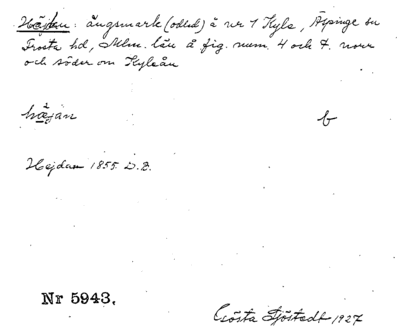 Hejdan: ängsmark (odlad) å nr 1 Kyla, Äspinge sn
Frosta hd, Mlm. län å fig. num. 4 och 7. norr
och söder om Kylaån
hæ̀jan b
Hejdan 1855. D.B.
Nr 5943.
Gösta Sjöstedt 1927